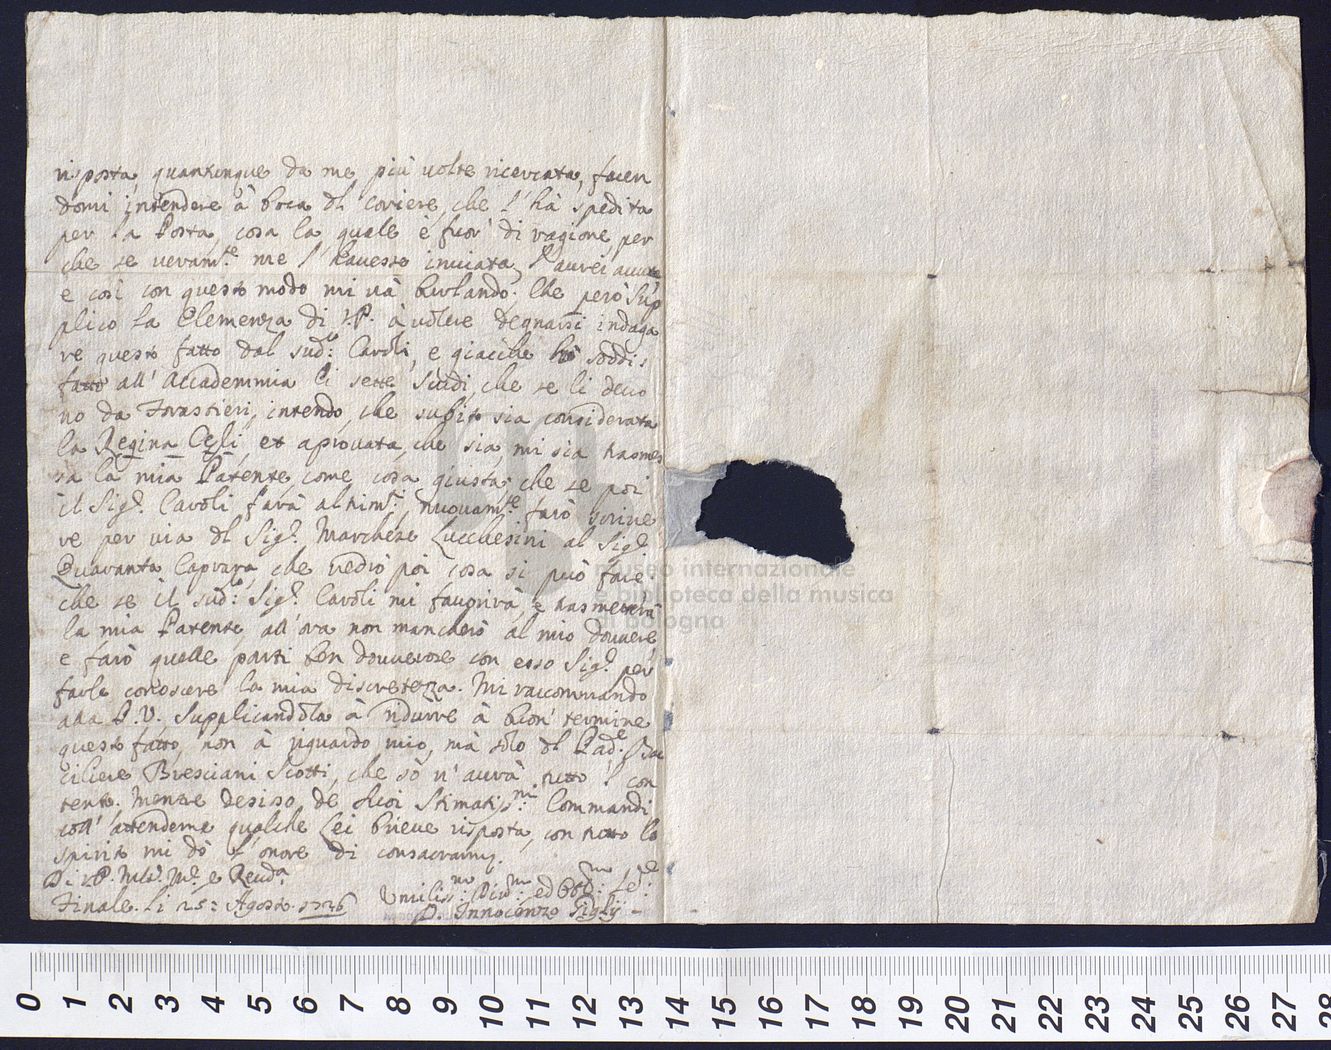 risposta, quantunque da me più volte ricercata, facen
domi intendere à boca dl' coriere, che l'hà spedita
per la Posta, cosa la quale è fuor' di ragione, per
che se veram.te me l'havesse inviata, l'aurei avuta
e così con questo modo mi và burlando. Che però Sup
plico la Clemenza di V.P. à volere degnarsi indaga
re questo fatto dal sud.o Caroli, e giacche hò soddis
fatto all' Accademmia li sette Scudi, che se li devo
no da Forastieri, intendo, che subito sia considerata
la Regina Cęli, et aprovata, che sia, mi sia trasmes
sa la mia Patente, come cosa giusta; che se poi
il Sig.r Caroli farà altrim.ti, nuovam.te farò scrive
re per via dl Sig.r Marchese Lucchesini al Sig.r
Quaranta Caprara, che vedrò poi cosa si può fare.
che se il sud.o Sig.r Caroli mi faurirà, e trasmeterà
la mia Patente, all'ora non mancherò al mio dovvere
e farò quelle parti ben dovverose con esso Sig.r per
farle conoscere la mia discretezza. Mi raccommando
alla P.V. Supplicandola à ridurre à buon' termine
questo fatto, non à riguardo mio, mà solo dl Pad.e Ba
ciliere Bresciani Scotti, che sò n'aurà tutto l' con
tento. Mentre desioso de Suoi Stimatiss.mi Commandi
coll' attenderne qualche Lei brieve risposta, con tutto lo
spirito mi dò l'onore di consacrarmi.
Di V.P. M.to M. e Reud.a
Finale. li 25: Agosto 1726
Umiliss.mo Div.mo ed Obb.mo Se.re
D. Innocenzo Siglij
museo internazionale
e biblioteca della musica
di bologna
0 1 2 3 4 5 6 7 8 9 10 11 12 13 14 15 16 17 18 19 20 21 22 23 24 25 26 27 28